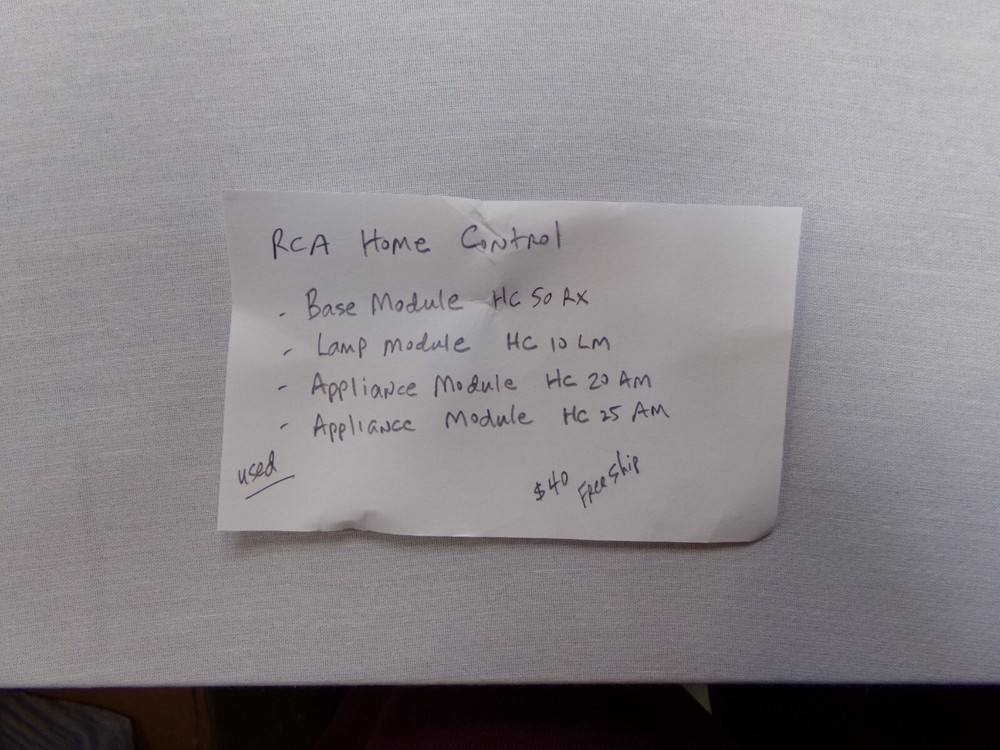 RCA Home Control
- Base Module HC 50 RX
- Lamp Module HC 10 LM
- Appliance Module HC 20 AM
- Appliance Module HC 25 AM
used
$40 Free Ship